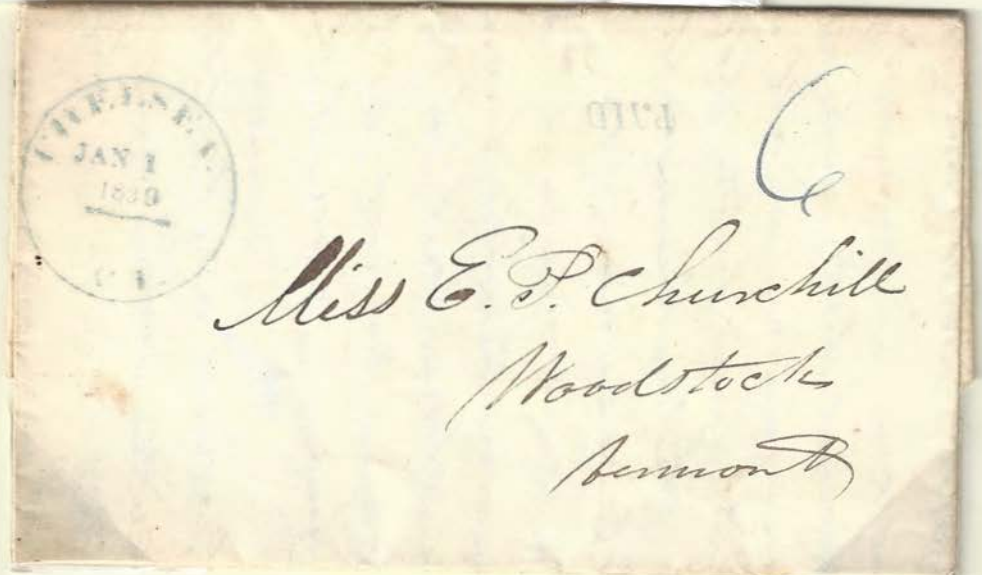 CHELSEA.
JAN 1
1839
6
PAID
Miss E. P. Churchill
Woodstock
Vermont